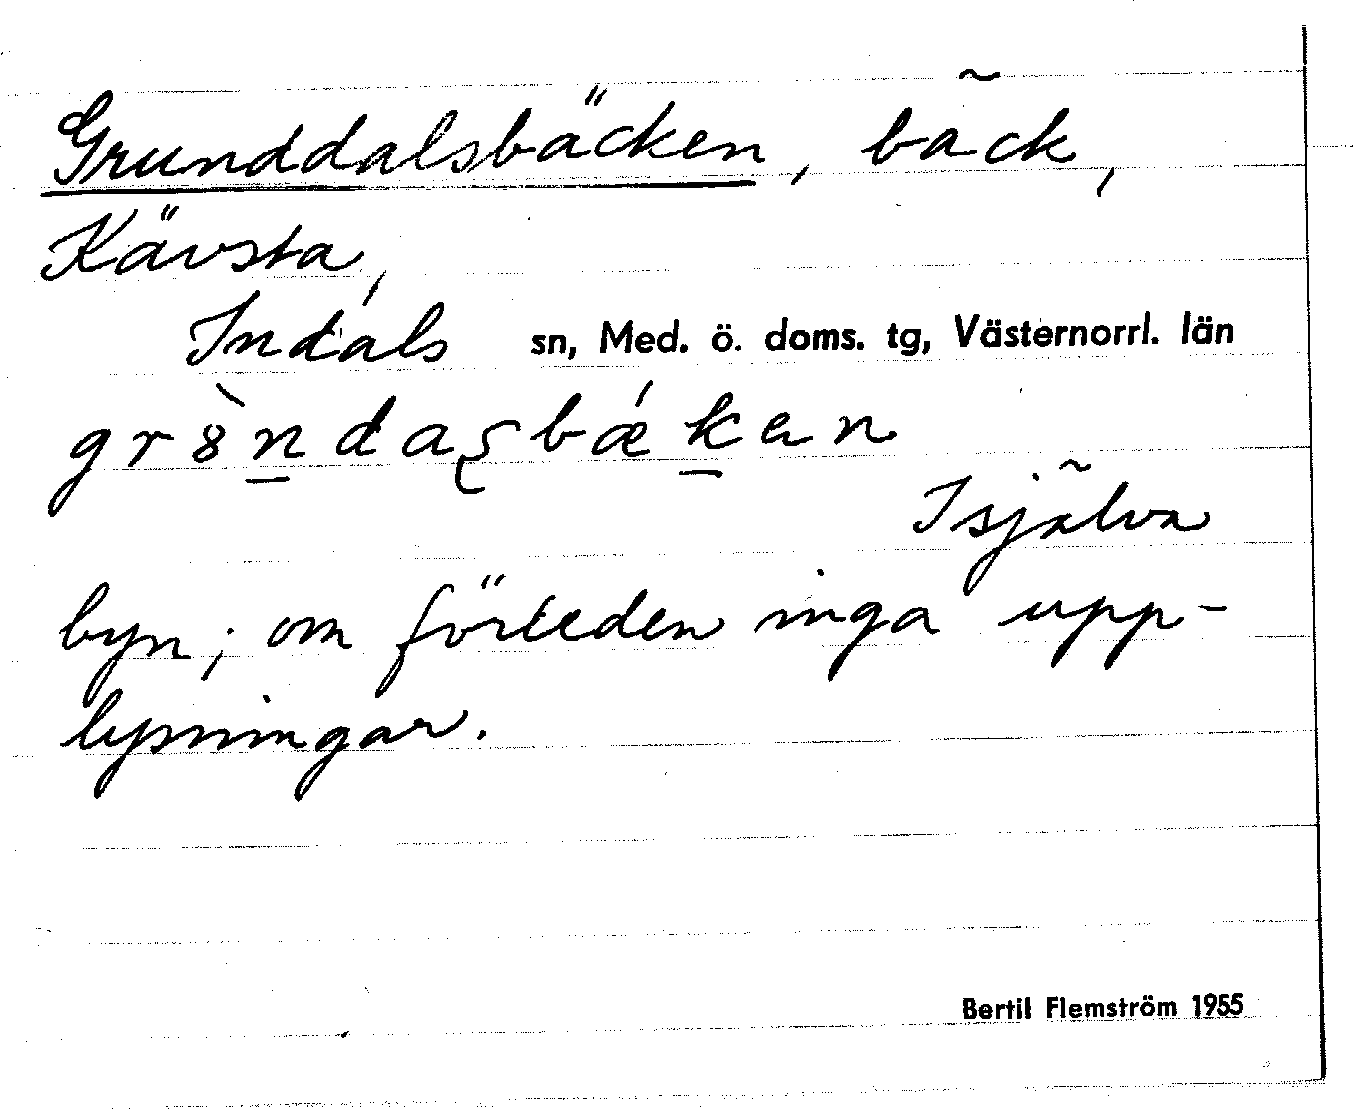 Grunddalsbäcken, bäck,
Kävsta,
Indals sn, Med. ö. doms. tg, Västernorrl. län
gr8̀n̲daʂbǽk̲en
I själva
byn; om förleden inga upp-
lysningar.
Bertil Flemström 1955